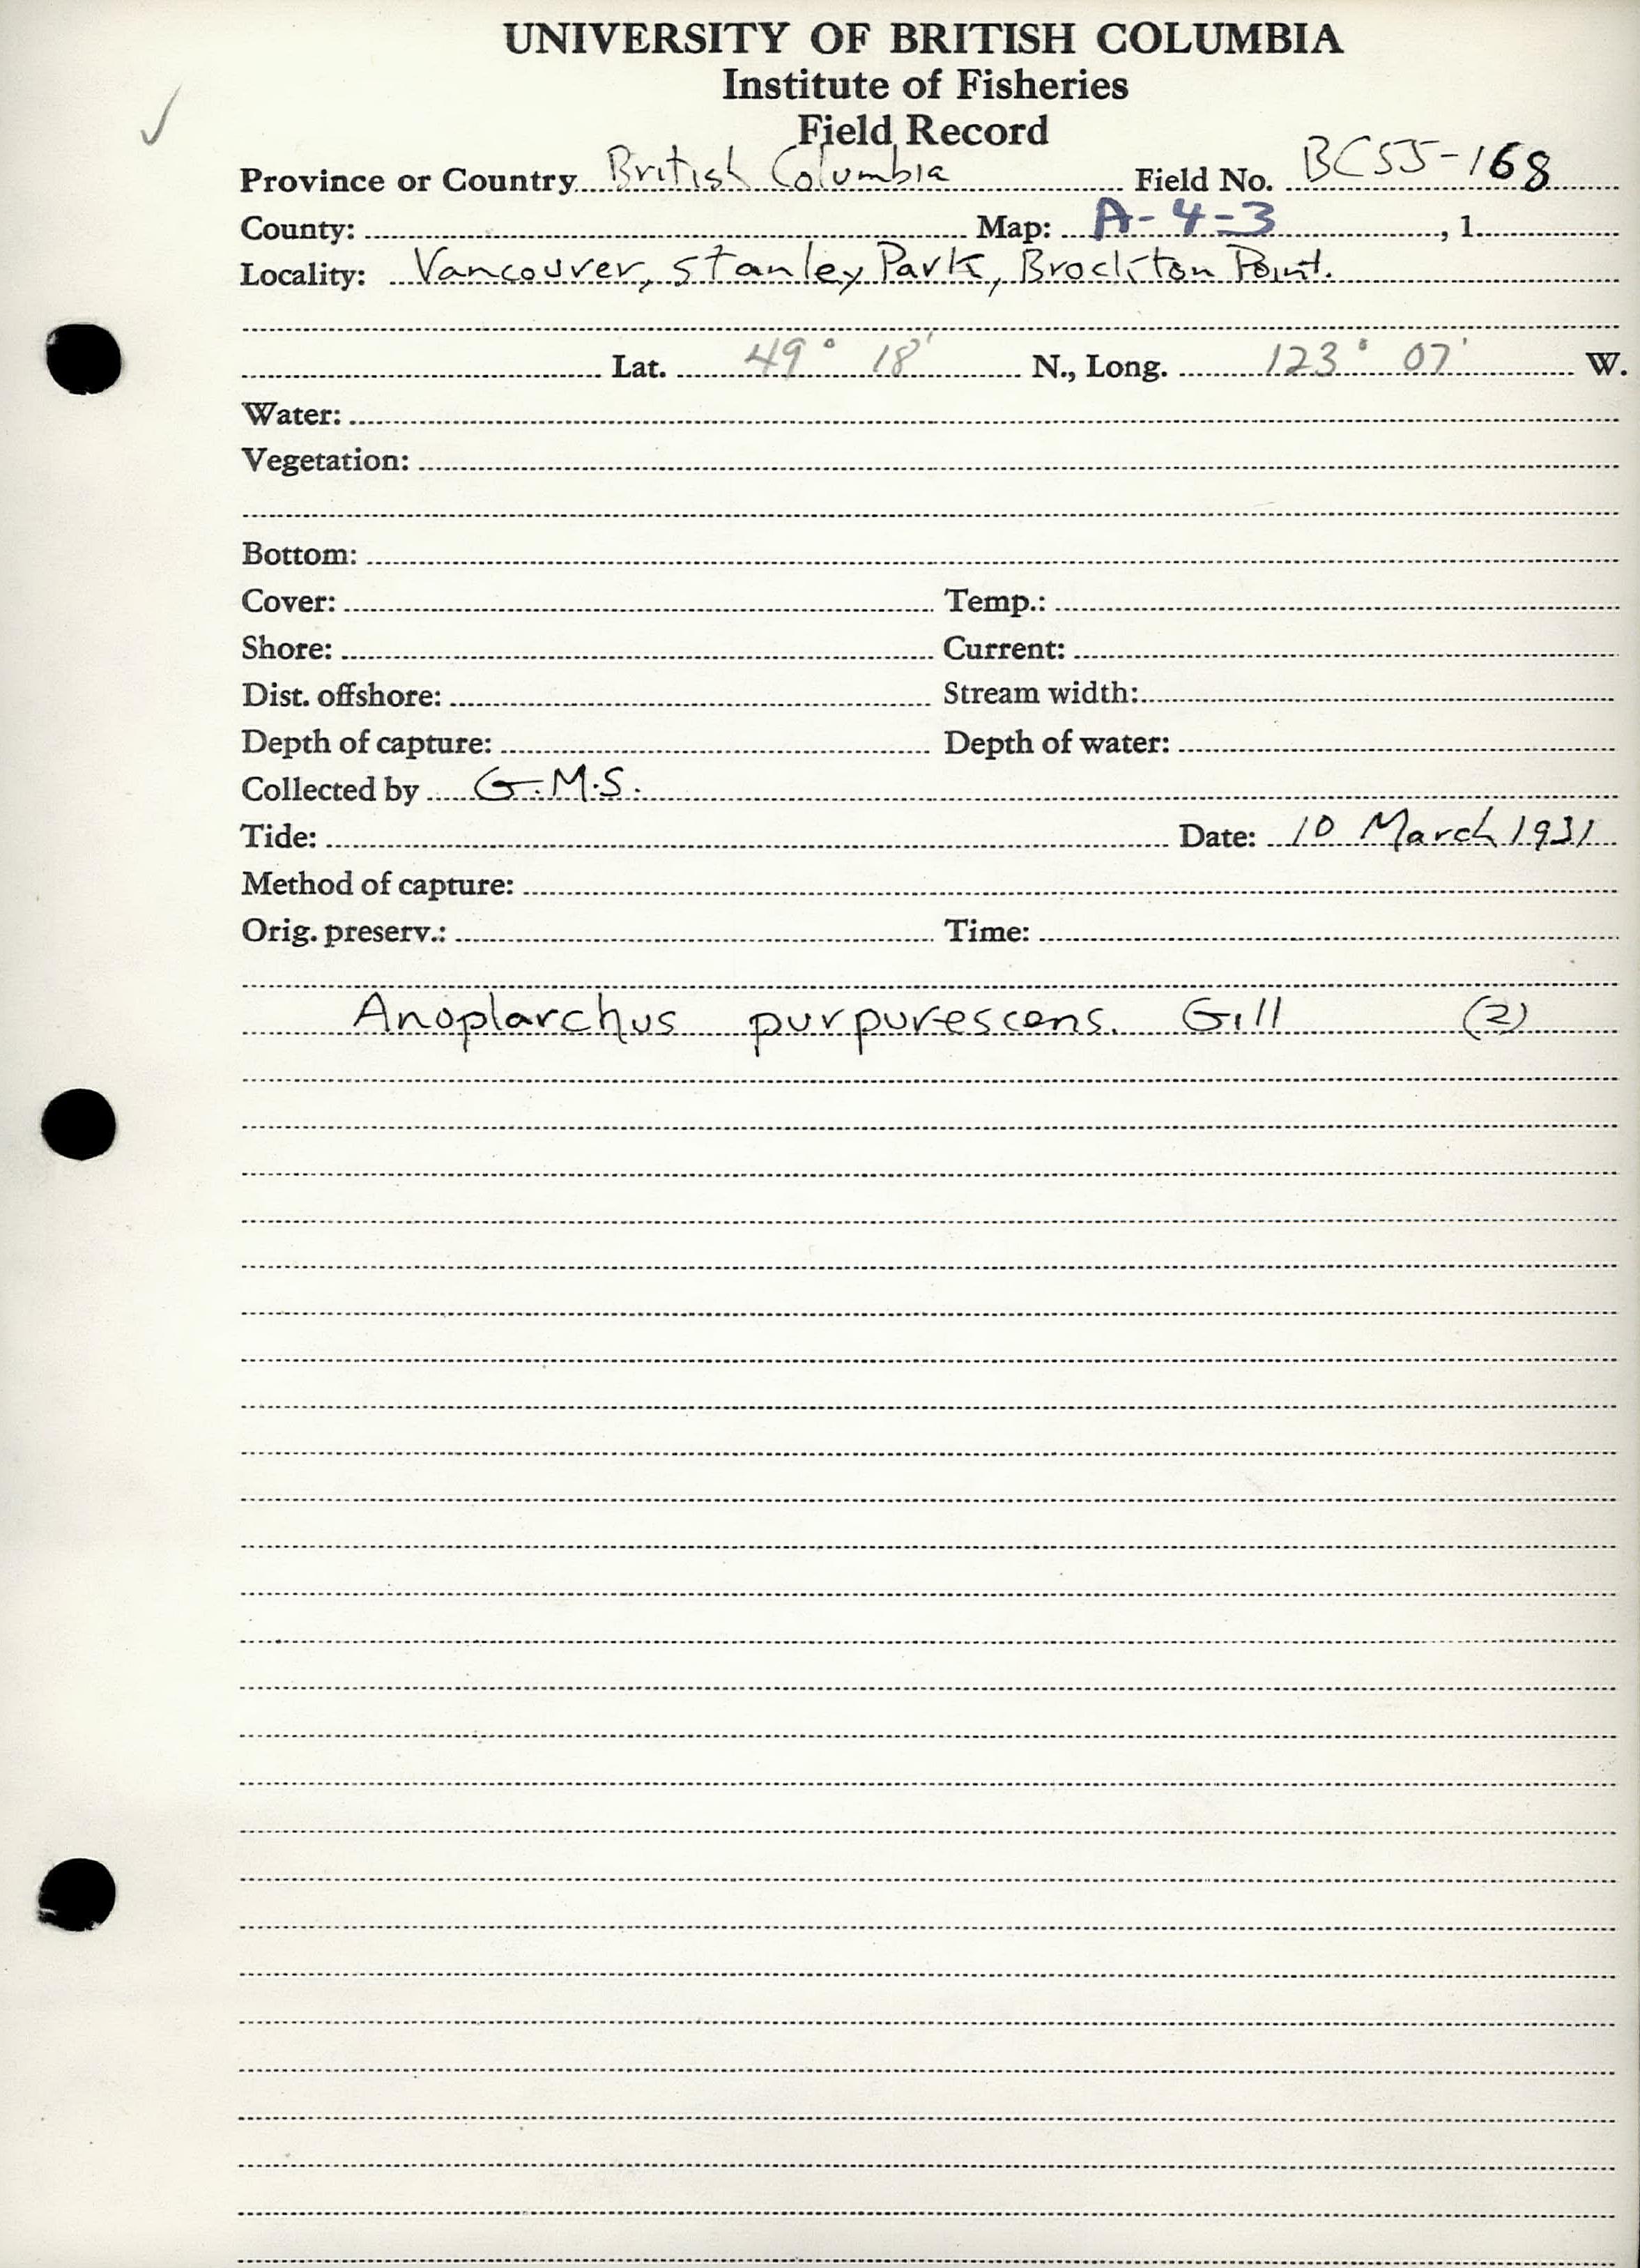 UNIVERSITY OF BRITISH COLUMBIA
Institute of Fisheries
Field Record
Province or Country British Columbia Field No. BC55-168
County: Map: A-4-3 , 1
Locality: Vancouver, Stanley Park, Brockton Point.
Lat. 49° 18' N., Long. 123° 07' W.
Water:
Vegetation:
Bottom:
Cover: Temp.:
Shore: Current:
Dist. offshore: Stream width:
Depth of capture: Depth of water:
Collected by G.M.S.
Tide: Date: 10 March 1931
Method of capture:
Orig. preserv.: Time:
Anoplarchus purpurescens. Gill (2)